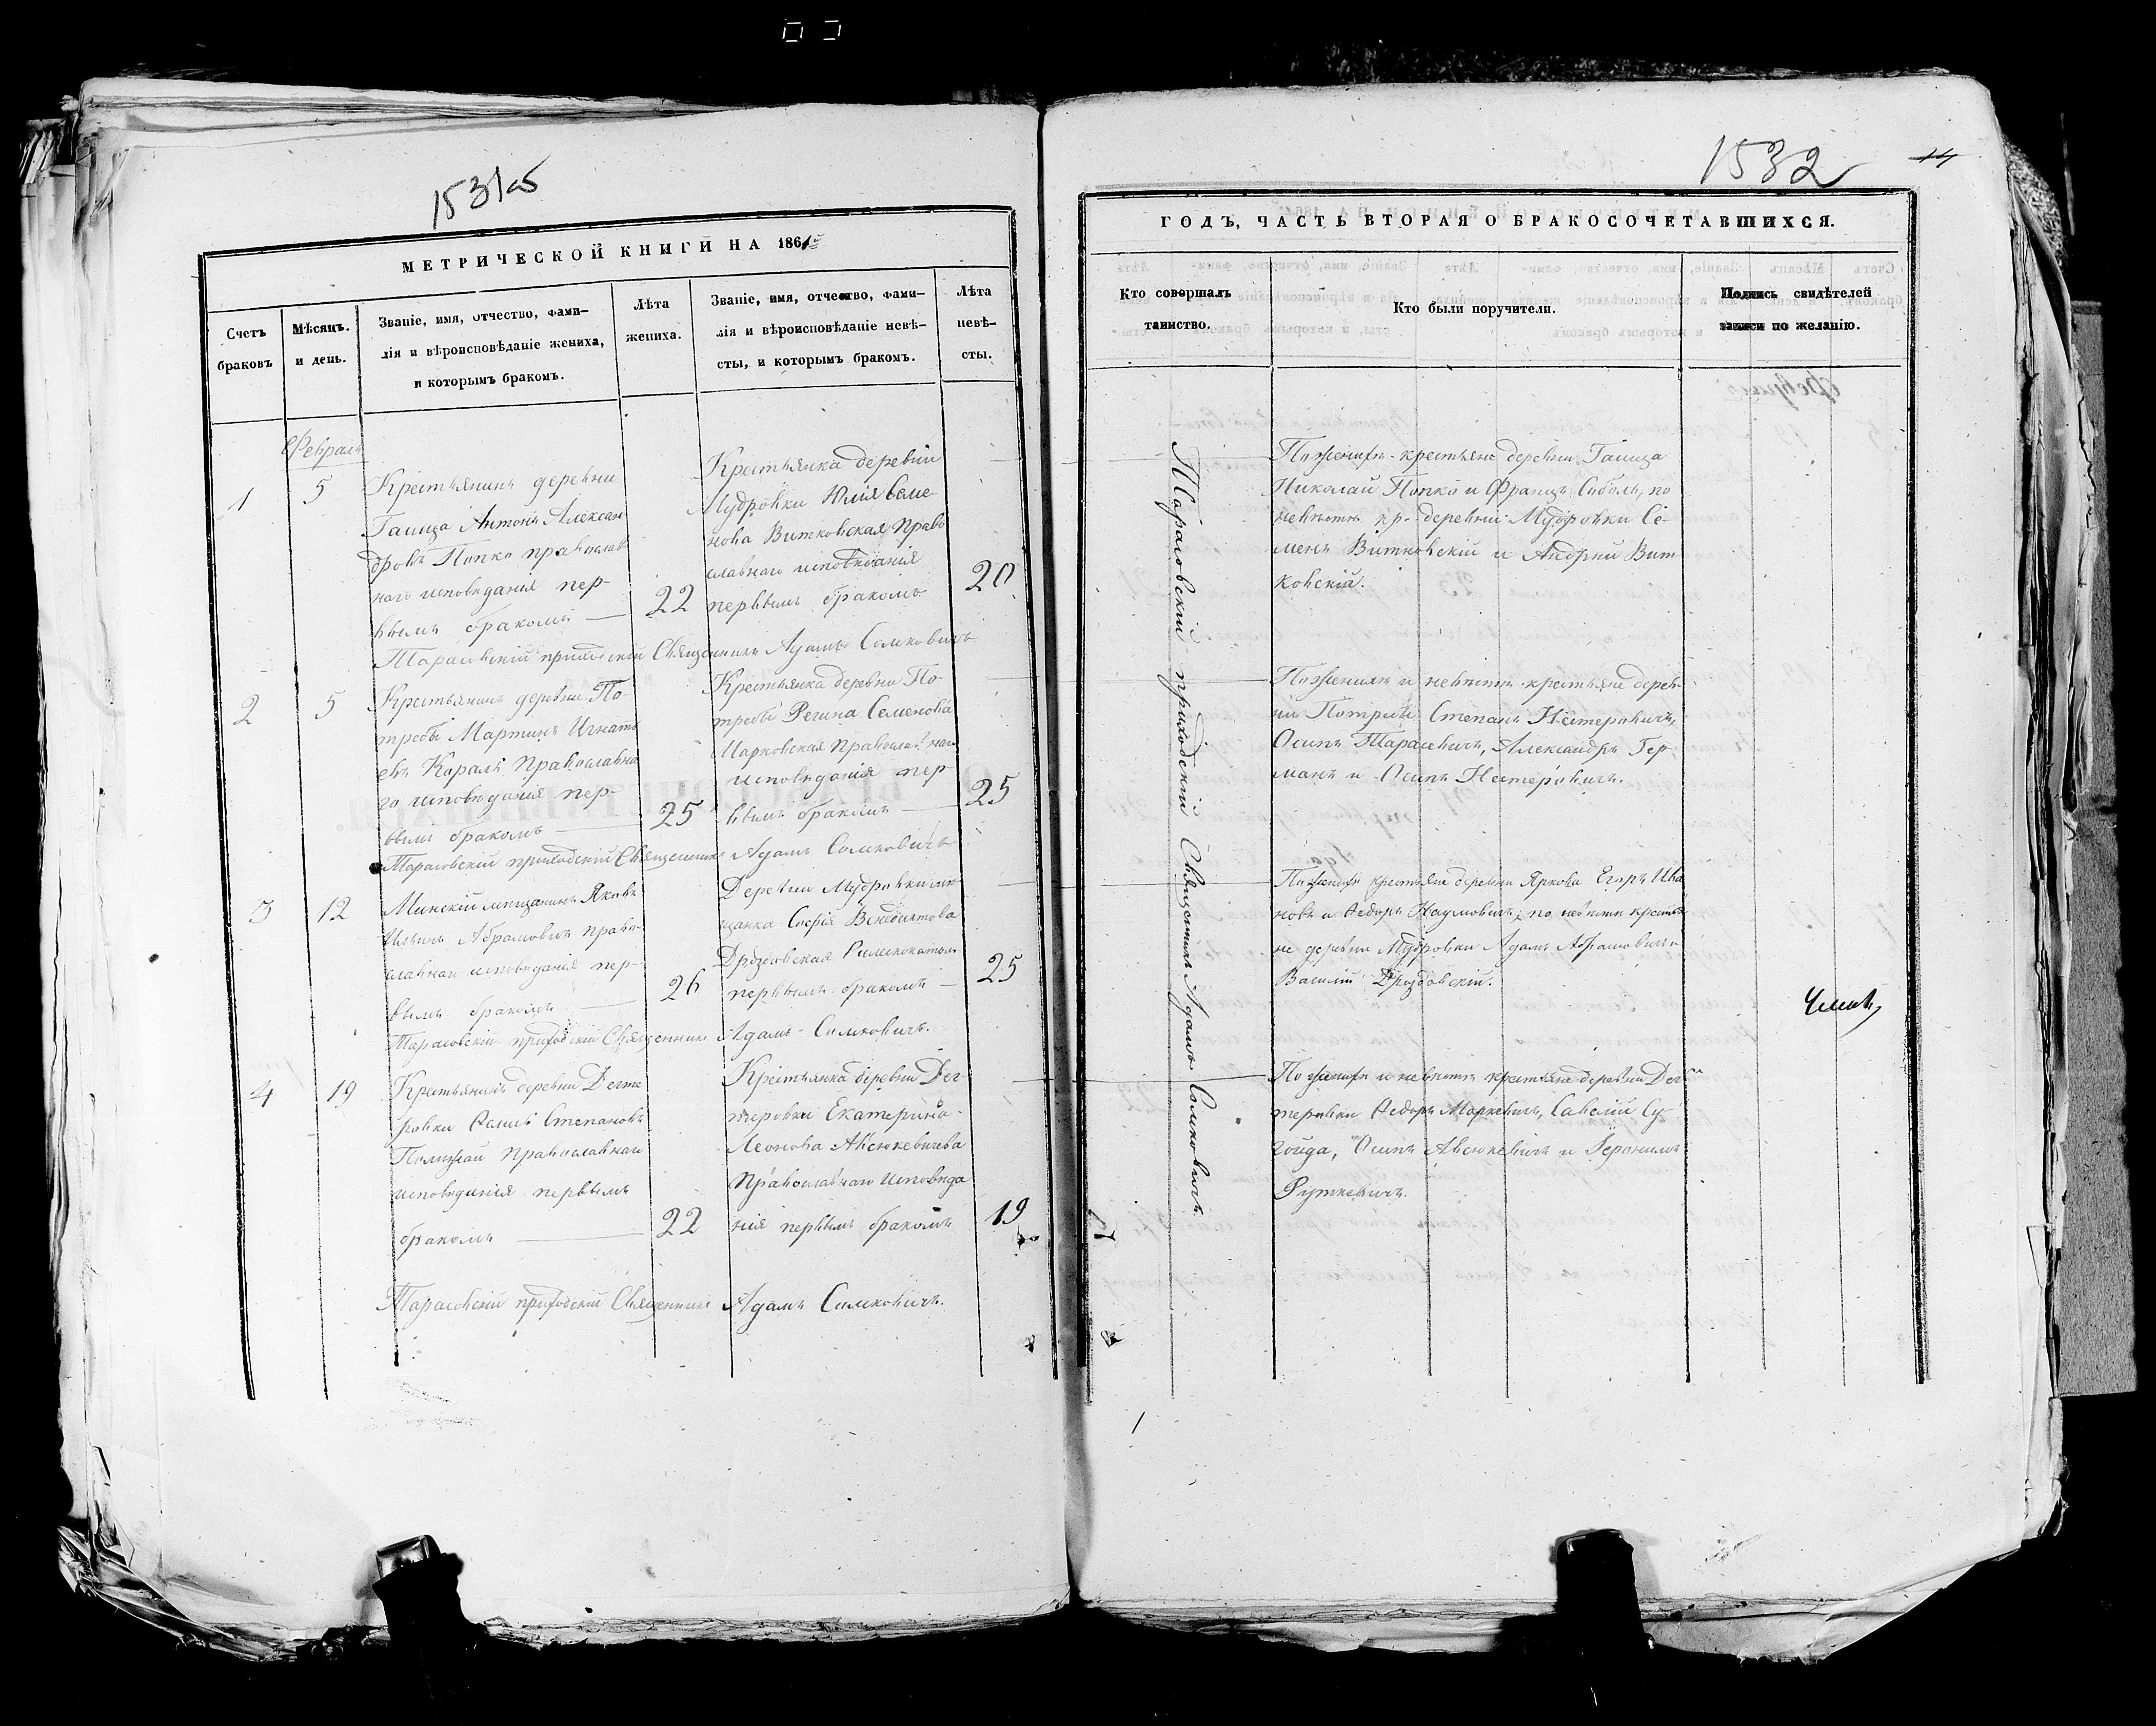 1531об
МЕТРИЧЕСКОЙ КНИГИ НА 1861й
Счетъ браковъ
Мѣсяцъ. и день.
Званіе, имя, отчество, фами-
лія и вѣроисповѣданіе жениха,
и которымъ бракомъ.
Лѣта жениха.
Званіе, имя, отчество, фами-
лія и вѣроисповѣданіе невѣ-
сты, и которымъ бракомъ.
Лѣта невѣ-
сты.
Февраль
1
5
Крестьянинъ деревни
Гаища Антонъ Алексан
дровъ Попко православ
наго исповѣданія пер-
вымъ бракомъ
22
Крестьянка деревни
Мудровки Юлія Семе-
нова Витковская Право
славнаго исповѣданія
первымъ бракомъ
20
Тарасовскій приходскій Священникъ Адамъ Самковичъ
2
5
Крестьянинъ деревни По-
требы Мартинъ Игнать
евъ Кораль Православна
го исповѣданія пер-
вымъ бракомъ
25
Крестьянка деревни По-
требы Регина Семенова
Марковская Православнаго
исповѣданія пер-
вымъ бракомъ
25
Тарасовскій приходскій Священникъ Адамъ Самковичъ
3
12
Минскій мѣщанинъ Яковъ
Ильинъ Абрамовичъ право-
славнаго исповѣданія пер-
вымъ бракомъ
26
Деревни Мудровки мѣ-
щанка Софія Венедиктова
Дроздовская Римскокатол.
первымъ бракомъ
25
Тарасовскій приходскій Священникъ Адамъ Самковичъ.
4
19
Крестьянинъ деревни Дегте
ровки Степановъ
Полижай Православнаго
исповѣданія первымъ
бракомъ
22
Крестьянка деревни Дег-
теровки Екатерина
Леонова Авсюкевичева
Православнаго Исповѣда
нія первымъ бракомъ
19
Тарасовскій приходскій Священникъ Адамъ Самковичъ.
1532
14
ГОДЪ, ЧАСТЬ ВТОРАЯ О БРАКОСОЧЕТАВШИХСЯ.
Кто совершалъ
таинство.
Кто были поручители.
Подпись свидѣтелей
записи по желанію.
Тарасовскій приходскій Священникъ Адамъ Самковичъ
По женихѣ крестьяне деревни Гаища
Николай Попко и Францъ Соболь, по
невѣстѣ кр. деревни Мудровки Се-
менъ Витковскій и Андрей Вит
ковскій.
По женихѣ и невѣстѣ крестьяне дерев-
ни Потребы Степанъ Нестеровичъ,
Осипъ Тарасевичъ, Александръ Гер-
манъ и Осипъ Нестеровичъ.
По женихѣ крестьяне деревни Яркова Егоръ Ива
новъ и Ѳедоръ Наумовичъ; по невѣстѣ крестья
не деревни Мудровки Адамъ Абрамовичъ и
Василій Дроздовскій.
По женихѣ и невѣстѣ крестьяне деревни Дег
теровки Ѳедоръ Маркевичъ, Савелій Су-
гойда, Осипъ Авсюкевичъ и Геронимъ
Руткевичъ.